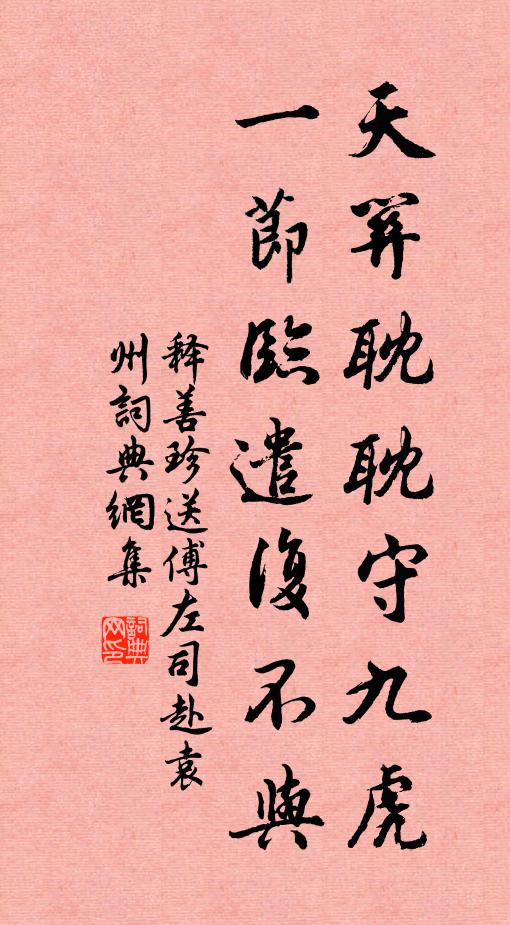 天關耽耽守九虎
一節臨遣復不與
释善珍送傅左司赴袁
州詞典網集
詞典网印